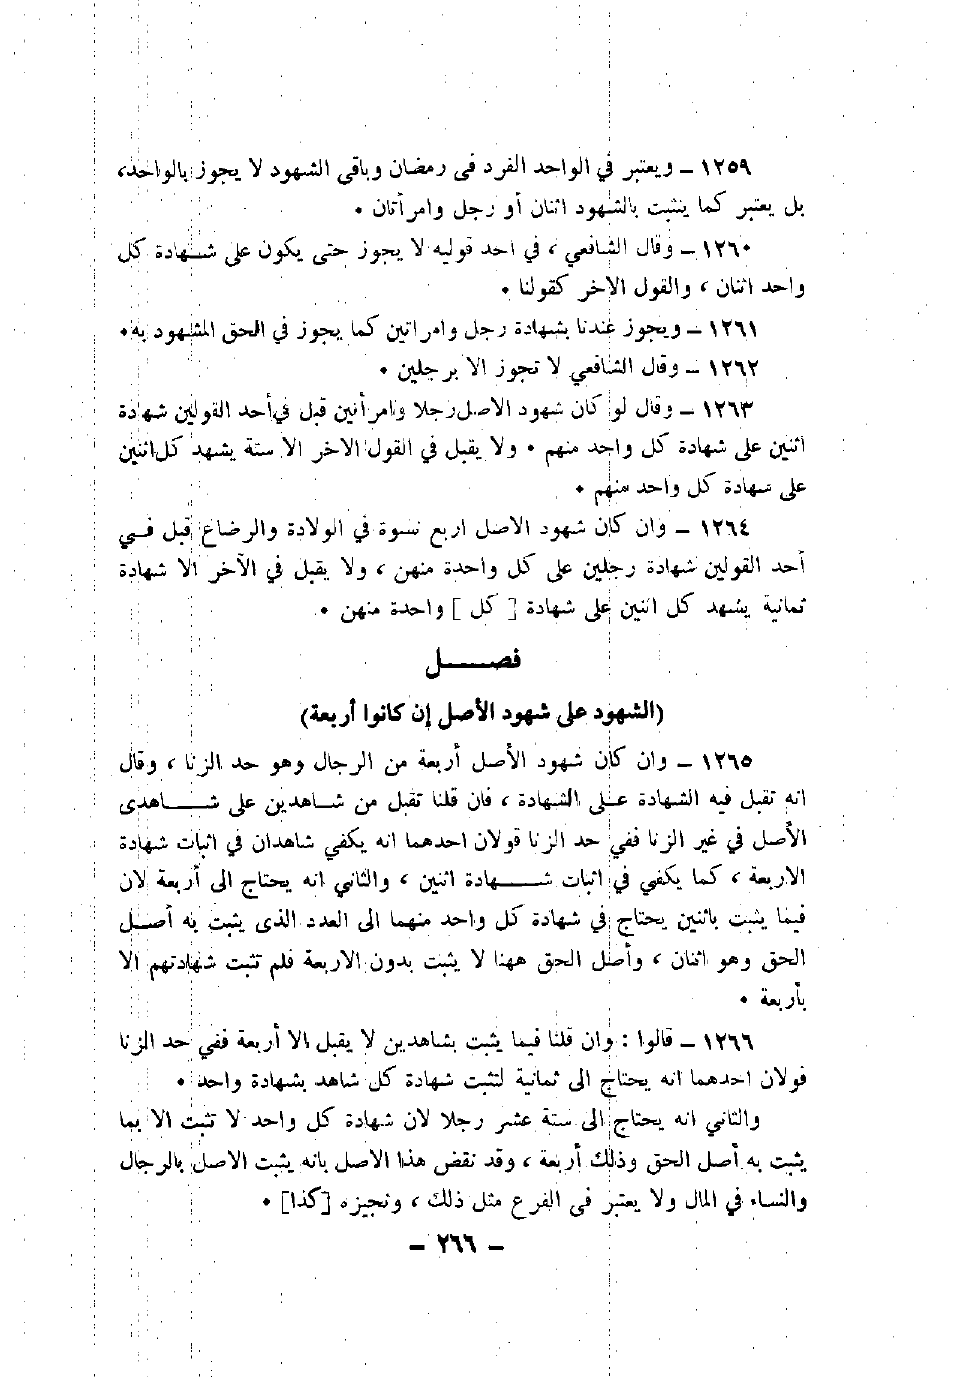 ١٢٥٩ ــ ويعتبر في الواحد الفرد فى رمضان وباقي الشهود لا يجوز بالواحد،
بل يعتبر كما يثبت بالشهود اثنان أو رجل وامرأتان ٠
١٢٦٠ ــ وقال الشافعي ، في احد قوليه لا يجوز حتى يكون على شــهادة كل
واحد اثنان ، والقول الاخر كقولنا ٠
١٢٦١ ــ ويجوز عندنا بشهادة رجل وامراتين كما يجوز في الحق المشهود به٠
١٢٦٢ ــ وقال الشافعي لا تجوز الا برجلين ٠
١٢٦٣ ــ وقال لو كان شهود الاصل رجلا وامرأتين قبل في أحد القولين شهادة
اثنين على شهادة كل واحد منهم ٠ ولا يقبل في القول الاخر الا ستة يشهد كل اثنين
على شهادة كل واحد منهم ٠
١٢٦٤ ــ وان كان شهود الاصل اربع نسوة في الولادة والرضاع قبل فــي
أحد القولين شهادة رجلين على كل واحدة منهن ، ولا يقبل في الآخر الا شهادة
ثمانية يشهد كل اثنين على شهادة [ كل ] واحدة منهن ٠
فصـــــل
(الشهود على شهود الأصل إن كانوا أربعة)
١٢٦٥ ــ وان كان شهود الأصل أربعة من الرجال وهو حد الزنا ، وقال
انه تقبل فيه الشهادة عــلى الشهادة ، فان قلنا تقبل من شــاهدين على شــــاهدى
الأصل في غير الزنا ففي حد الزنا قولان احدهما انه يكفي شاهدان في اثبات شهادة
الاربعة ، كما يكفي في اثبات شــــهادة اثنين ، والثاني انه يحتاج الى أربعة لان
فيما يثبت باثنين يحتاج في شهادة كل واحد منهما الى العدد الذى يثبت به أصــل
الحق وهو اثنان ، وأصل الحق ههنا لا يثبت بدون الاربعة فلم تثبت شهادتهم الا
بأربعة ٠
١٢٦٦ ــ قالوا : وان قلنا فيما يثبت بشاهدين لا يقبل الا أربعة ففي حد الزنا
قولان احدهما انه يحتاج الى ثمانية لتثبت شهادة كل شاهد بشهادة واحد ٠
والثاني انه يحتاج الى ستة عشر رجلا لان شهادة كل واحد لا تثبت الا بما
يثبت به أصل الحق وذلك أربعة ، وقد نقض هذا الاصل بانه يثبت الاصل بالرجال
والنساء في المال ولا يعتبر فى الفرع مثل ذلك ، ونجيزه [كذا] ٠
ــ ٢٦٦ ــ